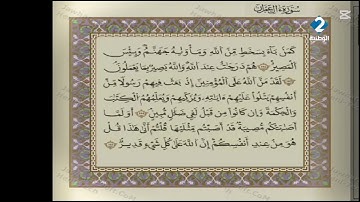 سُورَةُ آلِ عِمْرَانَ
2
الوطنية
كَمَنۢ بَآءَ بِسَخَطٍ مِّنَ ٱللَّهِ وَمَأْوَىٰهُ جَهَنَّمُ وَبِئْسَ
ٱلْمَصِيرُ ۝ هُمْ دَرَجَٰتٌ عِندَ ٱللَّهِ وَٱللَّهُ بَصِيرٌۢ بِمَا يَعْمَلُونَ ۝
لَقَدْ مَنَّ ٱللَّهُ عَلَى ٱلْمُؤْمِنِينَ إِذْ بَعَثَ فِيهِمْ رَسُولًا مِّنْ
أَنفُسِهِمْ يَتْلُوا۟ عَلَيْهِمْ ءَايَٰتِهِۦ وَيُزَكِّيهِمْ وَيُعَلِّمُهُمُ ٱلْكِتَٰبَ
وَٱلْحِكْمَةَ وَإِن كَانُوا۟ مِن قَبْلُ لَفِى ضَلَٰلٍ مُّبِينٍ ۝ أَوَلَمَّآ
أَصَٰبَتْكُم مُّصِيبَةٌ قَدْ أَصَبْتُم مِّثْلَيْهَا قُلْتُمْ أَنَّىٰ هَٰذَا قُلْ
هُوَ مِنْ عِندِ أَنفُسِكُمْ إِنَّ ٱللَّهَ عَلَىٰ كُلِّ شَىْءٍ قَدِيرٌ ۝